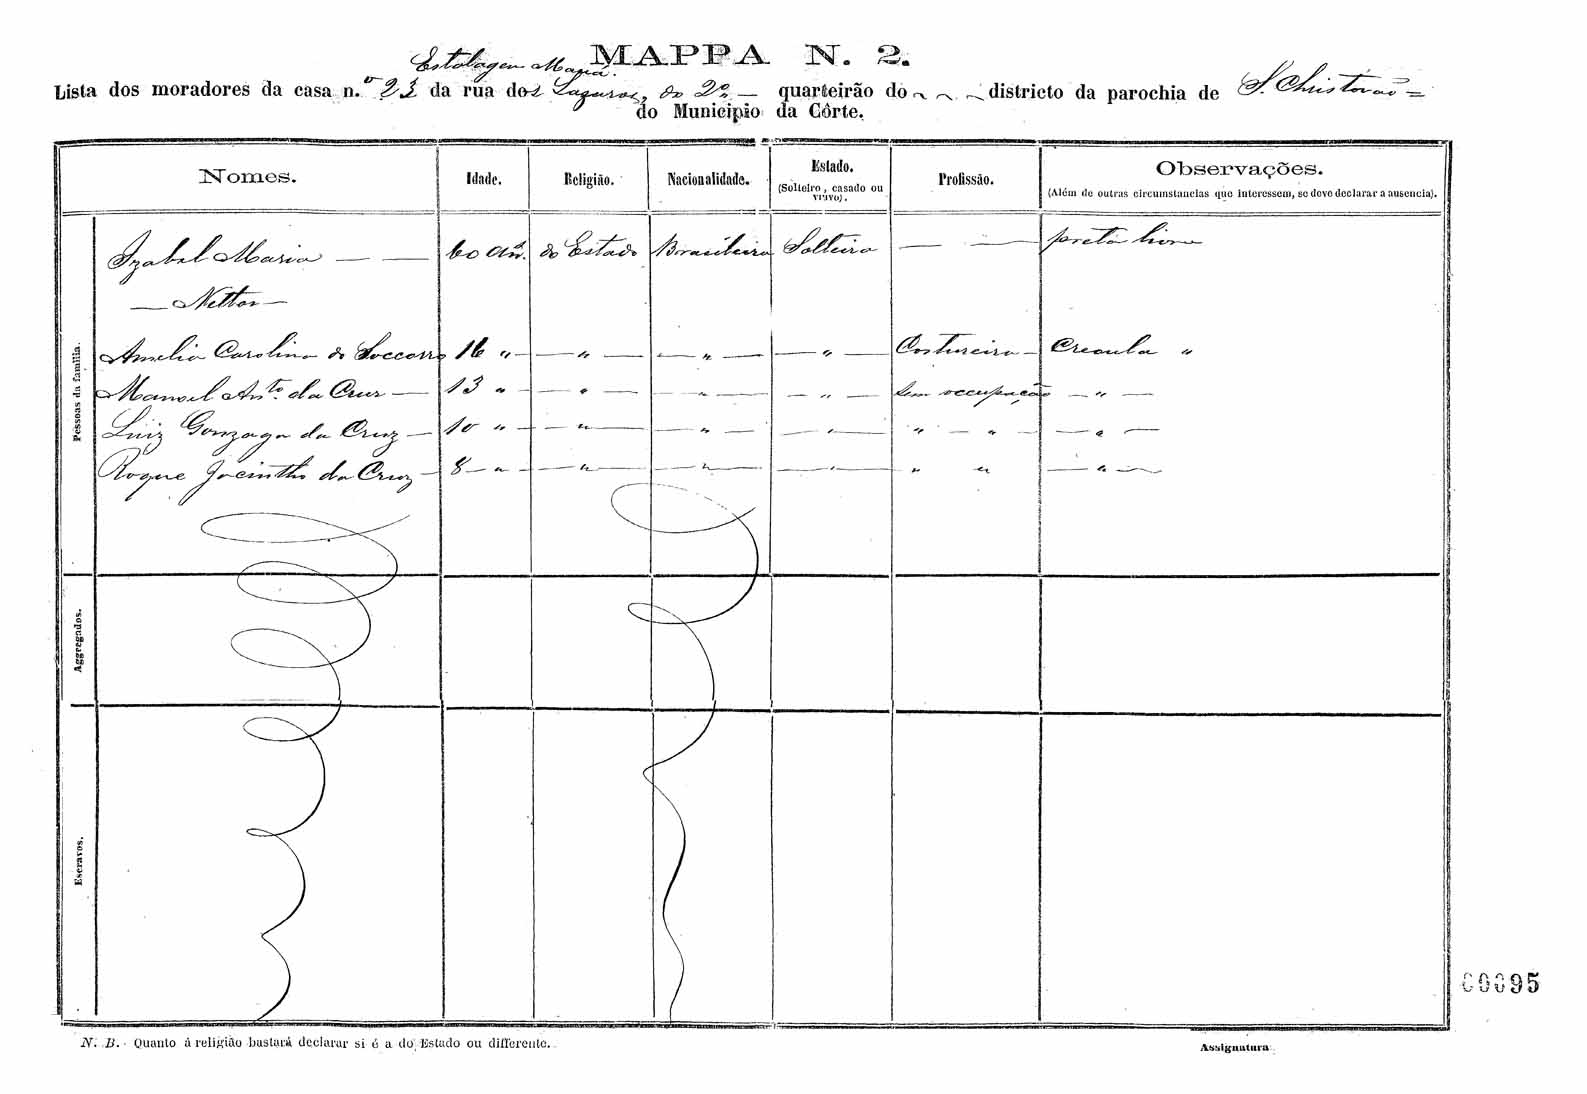 MAPPA N. 2.
Estalagem Mauá.
Lista dos moradores da casa n.º 23 da rua dos Lazaros, do 2º quarteirão do districto da parochia de S. Christovão
do Municipio da Côrte.
Nomes. Idade. Religião. Nacionalidade. Estado. (Solteiro, casado ou viuvo). Profissão. Observações. (Além de outras circumstancias que interessem, se deve declarar a ausencia).
Pessoas da familia.
Izabel Maria — — 60 an. do Estado Brasileira Solteira — — preta livre
— Nettos —
Amelia Carolina do Soccorro 16 " — " — — " — — " — Costureira — Creoula "
Manoel Anto. da Cruz — 13 " — " — — " — — " — Sem occupação — " —
Luiz Gonzaga da Cruz — 10 " — " — — " — — " — " — " — — " —
Roque Jacintho da Cruz — 8 — " — " — — " — — " — " " — " —
Aggregados.
Escravos.
00095
N. B. Quanto á religião bastará declarar si é a do Estado ou differente.
Assignatura